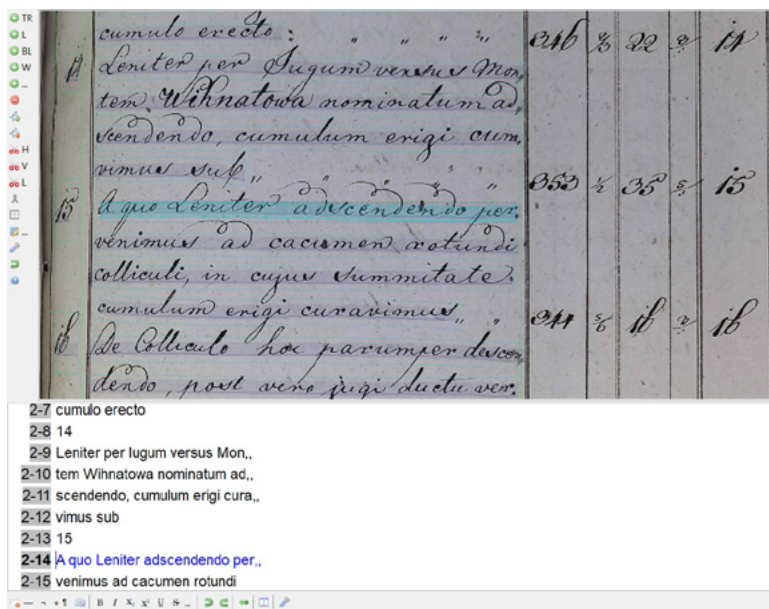 TR
L
BL
W
...
H
V
L
...
cumulo erecto : " " " " 346 22 14
14 Leniter per Jugum versus Mon„
tem Wihnatowa nominatum ad„
scendendo, cumulum erigi cura„
vimus sub „ " " " " 353 35 15
15 A quo Leniter adscendendo per„
venimus ad cacumen rotundi
colliculi, in cujus summitate
cumulum erigi curavimus „ „ 344 16 16
16 De Colliculo hoc parumper descen„
dendo, post vero jugi ductu ver„
2-7 cumulo erecto
2-8 14
2-9 Leniter per Iugum versus Mon,,
2-10 tem Wihnatowa nominatum ad,,
2-11 scendendo, cumulum erigi cura,,
2-12 vimus sub
2-13 15
2-14 A quo Leniter adscendendo per,,
2-15 venimus ad cacumen rotundi
B I X₁ x¹ U S ...